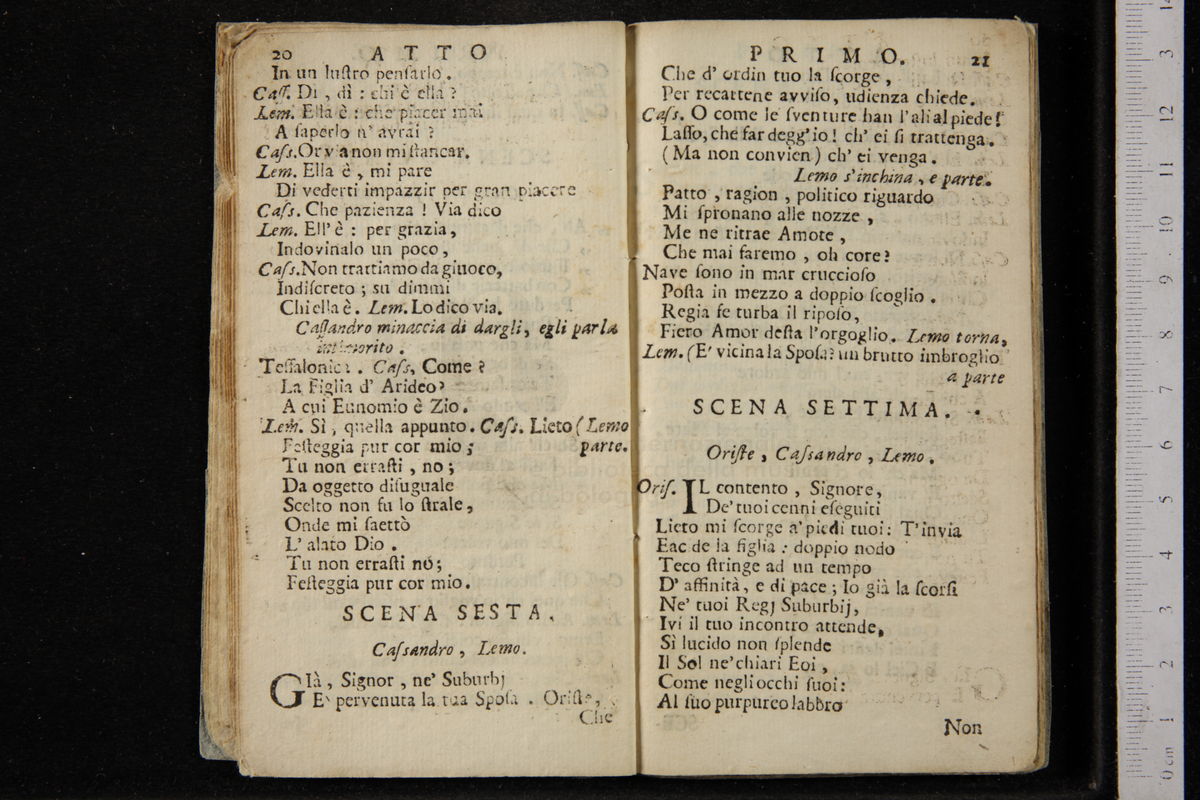 20 ATTO
In un luſtro penſarlo.
Caſſ. Di, dì: chi è ella?
Lem. Ella è: che piacer mai
A ſaperlo n'avrai?
Caſs. Or via non mi ſtancar.
Lem. Ella è, mi pare
Di vederti impazzir per gran piacere
Caſs. Che pazienza! Via dico
Lem. Ell'è: per grazia,
Indovinalo un poco,
Caſs. Non trattiamo da giuoco,
Indiſcreto; su dimmi
Chi ella è. Lem. Lo dico via.
Caſſandro minaccia di dargli, egli parla
intimorito.
Teſſalonica. Caſs, Come?
La Figlia d'Arideo?
A cui Eunomio è Zio.
Lem. Sì, quella appunto. Caſs. Lieto (Lemo
Feſteggia pur cor mio; parte.
Tu non erraſti, no;
Da oggetto diſuguale
Scelto non fu lo ſtrale,
Onde mi ſaettò
L'alato Dio.
Tu non erraſti nò;
Feſteggia pur cor mio.
SCENA SESTA.
Caſsandro, Lemo.
Già, Signor, ne' Suburbj
E' pervenuta la tua Spoſa. Oriſte,
Che
PRIMO. 21
Che d'ordin tuo la ſcorge,
Per recartene avviſo, udienza chiede.
Caſs. O come le ſventure han l'ali al piede!
Laſſo, che far degg'io! ch'ei ſi trattenga.
(Ma non convien) ch'ei venga.
Lemo s'inchina, e parte.
Patto, ragion, politico riguardo
Mi ſpronano alle nozze,
Me ne ritrae Amore,
Che mai faremo, oh core?
Nave ſono in mar cruccioſo
Poſta in mezzo a doppio ſcoglio.
Regia fe turba il ripoſo,
Fiero Amor deſta l'orgoglio. Lemo torna,
Lem. (E' vicina la Spoſa? un brutto imbroglio
a parte
SCENA SETTIMA.
Oriſte, Caſsandro, Lemo.
Oriſ. IL contento, Signore,
De' tuoi cenni eſeguiti
Lieto mi ſcorge a' piedi tuoi: T'invia
Eac de la figlia: doppio nodo
Teco ſtringe ad un tempo
D'affinità, e di pace; Io già la ſcorſi
Ne' tuoi Regj Suburbij,
Ivi il tuo incontro attende,
Sì lucido non ſplende
Il Sol ne' chiari Eoi,
Come negli occhi ſuoi:
Al ſuo purpureo labbro
Non